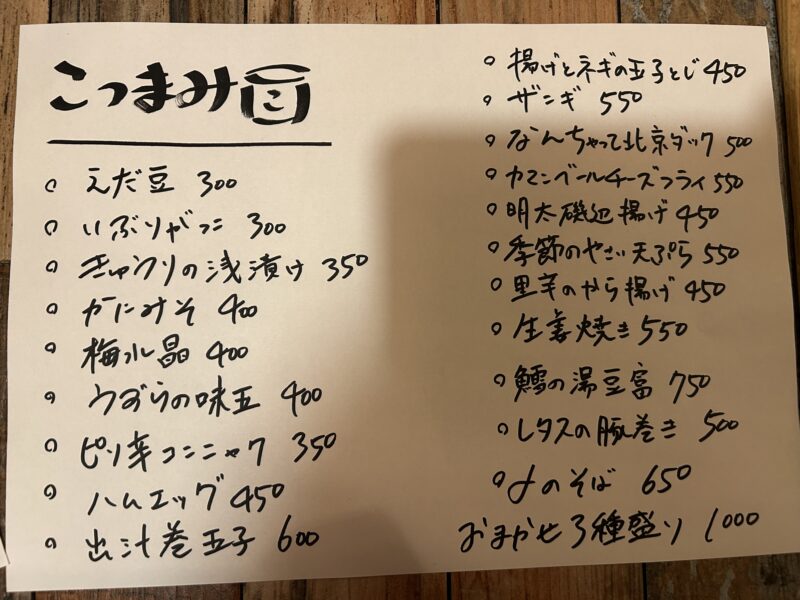 こつまみ
えだ豆 300
いぶりがっこ 300
きゅうりの浅漬け 350
かにみそ 400
梅水晶 400
うずらの味玉 400
ピリ辛コンニャク 350
ハムエッグ 450
出汁巻玉子 600
揚げとネギの玉子とじ 450
ザンギ 550
なんちゃって北京ダック 500
カマンベールチーズフライ 550
明太磯辺揚げ 450
季節のやさい天ぷら 550
里芋のから揚げ 450
生姜焼き 550
鱈の湯豆富 750
レタスの豚巻き 500
〆のそば 650
おまかせ3種盛り 1000